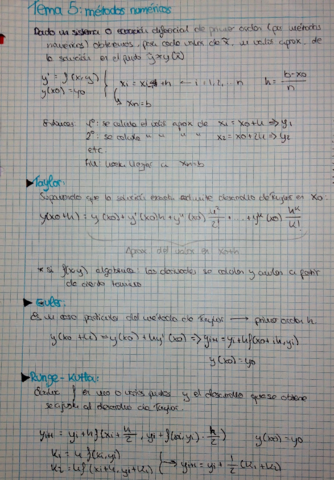 Tema 5: métodos numéricos
Dado un sistema o ecuación diferencial de primer orden (por métodos
numéricos) obtenemos, para cada valor de x, un valor aprox. de
la solución en el punto y=y(x)
y' = f(x,y)
y(x0) = y0
xn=b
h = b-x0 / n
Entonces: 1º: se calcula el valor aprox de x1 = x0+h ⇒ y1
2º: se calcula " " " " x2 = x0+2h ⇒ y2
etc
llegar a xn=b
▶ Taylor:
Suponiendo que la solución exacta admite desarrollo de Taylor en x0
y(x0+h) = y(x0) + y'(x0)h + y''(x0) h²/2! + ... + yᵏ(x0) hᵏ/k!
Aprox del valor en x0+h
* Si f(x,y) algebraica las derivadas se calculan a partir
de cierto
▶ Euler:
Es un caso particular del método de Taylor → primer orden h.
y(x0+h) = y(x0) + hy'(x0) ⇒ yi+1 = yi + hf(x0+h, yi)
y(x0) = y0
▶ Runge-Kutta:
f en uno o varios puntos y el desarrollo que se obtiene
se ajusta al desarrollo de Taylor
yi+1 = yi + hf(xi + h/2, yi + f(xi,yi) · h/2) y(x0) = y0
k1 = hf(xi,yi)
k2 = hf(xi+h, yi+k1) → yi+1 = yi + 1/2 (k1+k2)